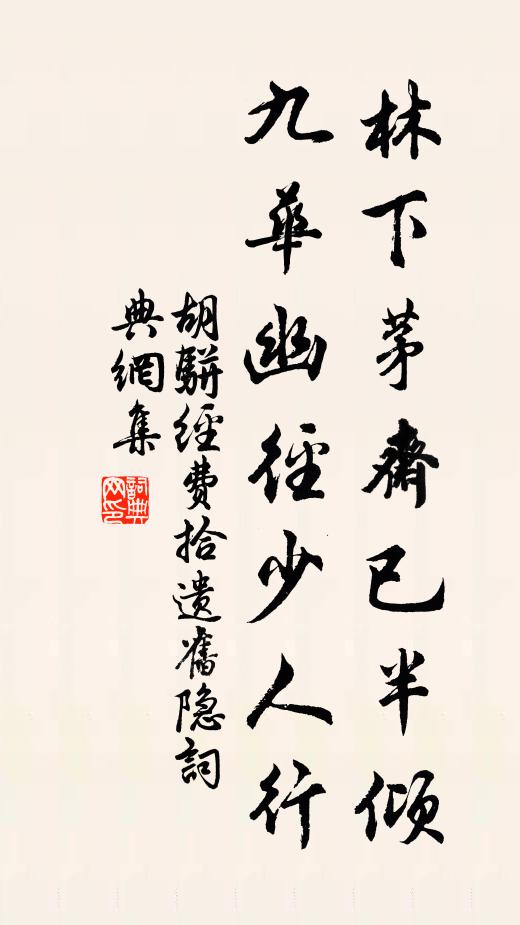 林下茅齋已半傾
九華幽徑少人行
胡騈經費拾遺舊隐詞
典網集
詞典网印